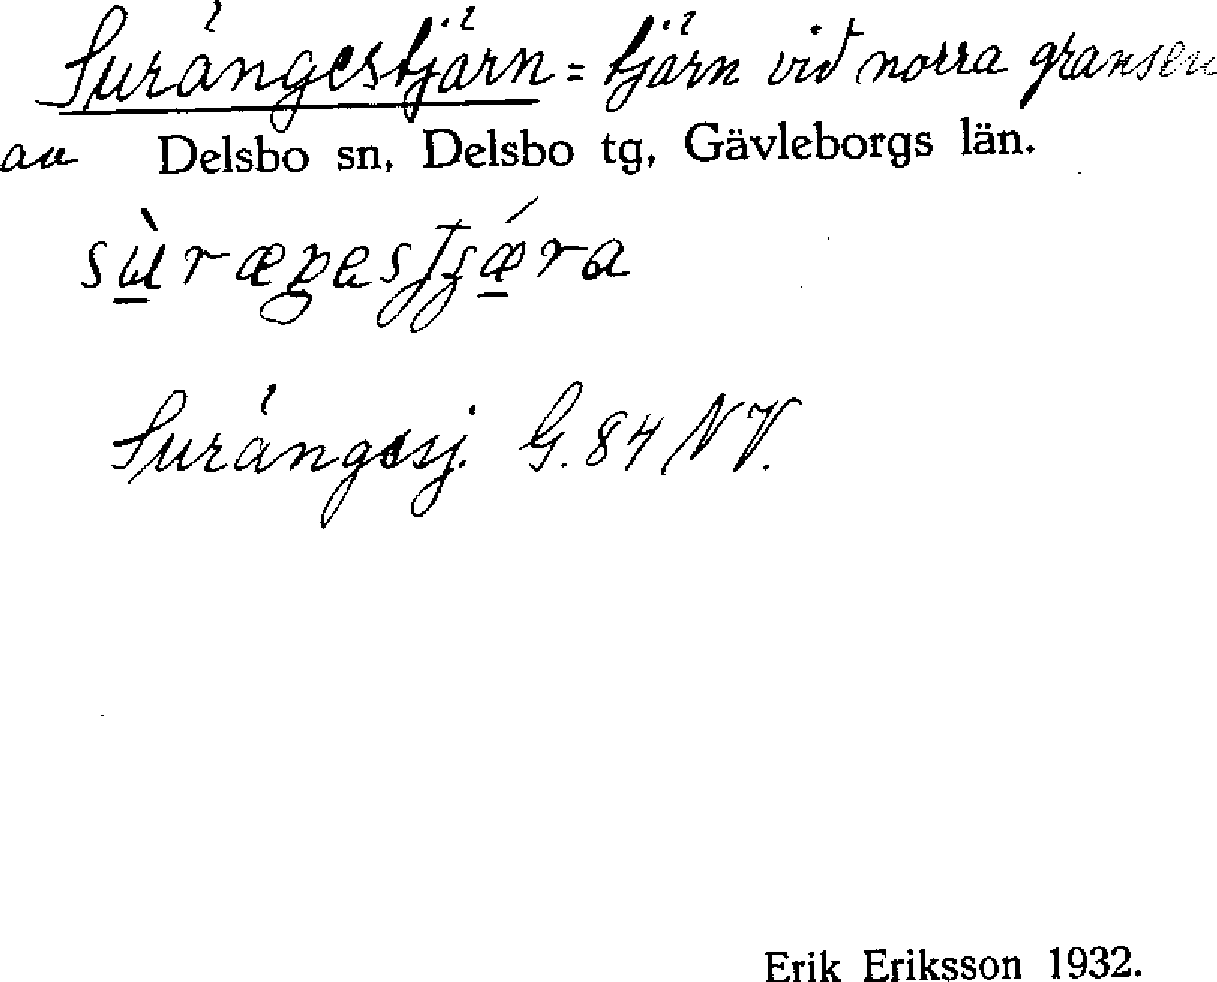 Surängestjärn = tjärn vid norra gränsen
av Delsbo sn, Delsbo tg, Gävleborgs län.
Surängesj. G. 84 NV.
Erik Eriksson 1932.